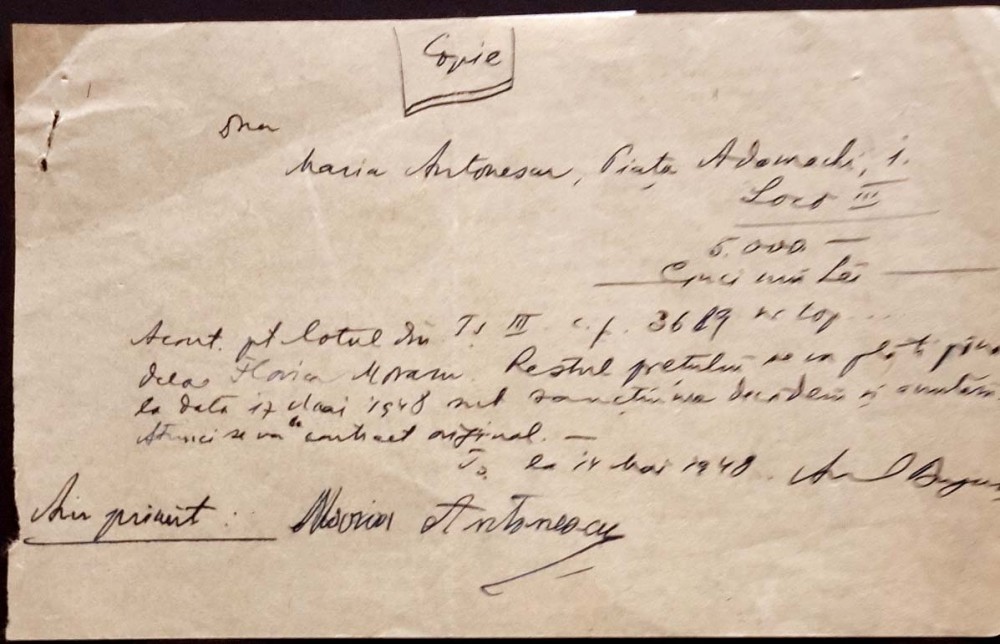 Copie
Dna
Maria Antonescu, Piața Adamachi, 1.
Loco III
5.000 —
Cinci mii Lei
Acont pt lotul din Ts III c.f. 3689 nr top ...
dela Moraru. Restul prețului se va plăti până
la data 17 Mai 1948 sub sancțiunea decăderii și
Atunci se va contract original. —
Ts. la 14 Mai 1948.
Am primit: Maria Antonescu